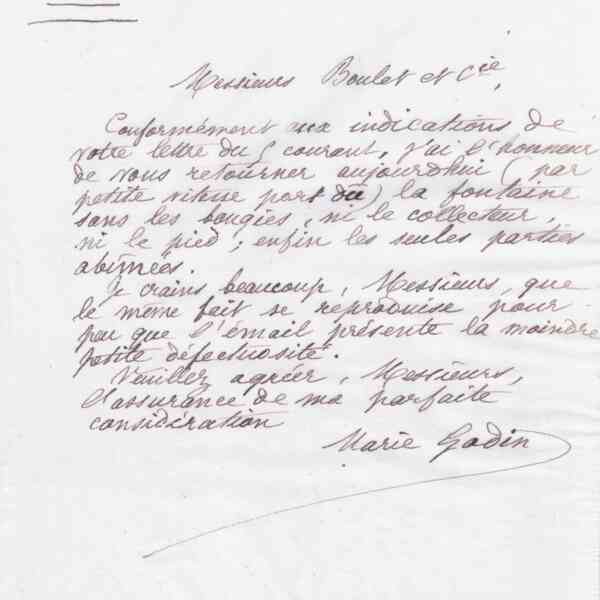 Messieurs Boulet et Cie,
Conformément aux indications de
votre lettre du 5 courant, j'ai l'honneur
de vous retourner aujourdhui (par
petite vitesse port dû) la fontaine
sans les bougies, ni le collecteur,
ni le pied ; enfin les seules parties
abîmées.
Je crains beaucoup, Messieurs, que
le même fait se reproduise pour
peu que l'émail présente la moindre
petite défectuosité.
Veuillez agréer, Messieurs,
l'assurance de ma parfaite
considération
Marie Godin